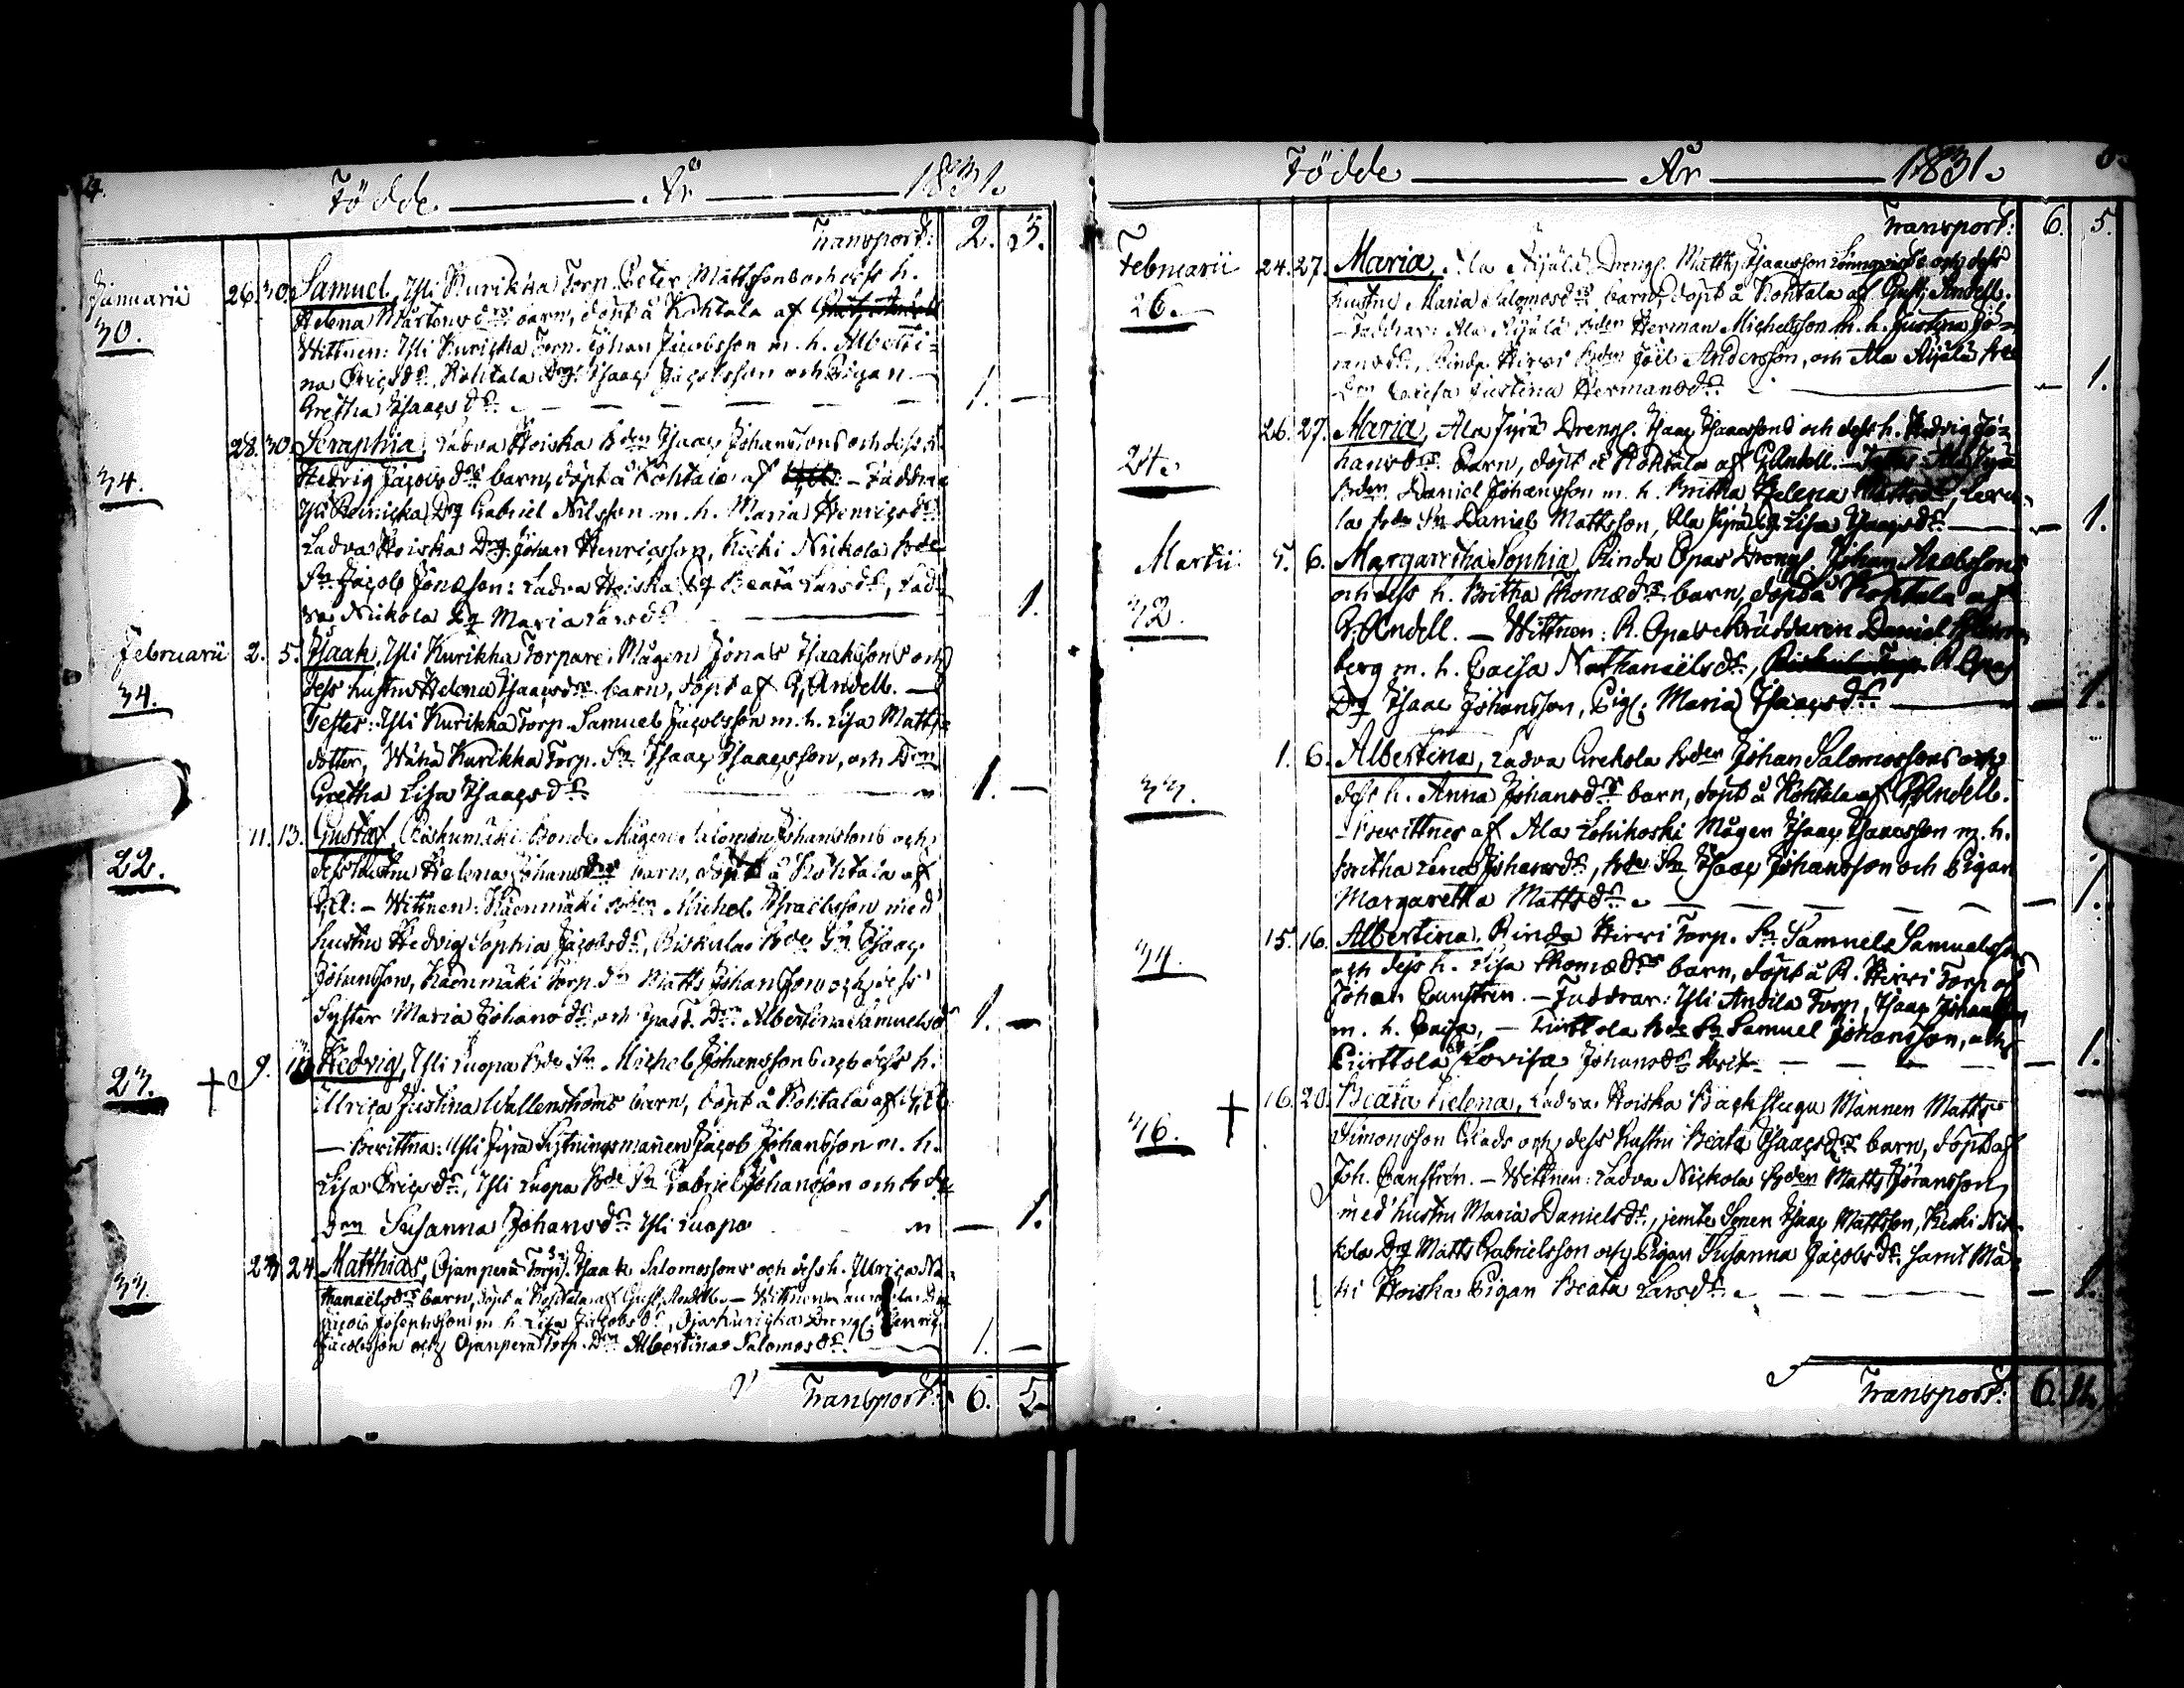 4.
Födde År 1831.
Transport: 2. 3.
Januarii 26. 30. Samuel, Yli Kurikka Torp. Peter Mattssons och dess h.
30. Helena Mårtensdrs barn, döpt å Kohtala af
Wittnen: Yli Kurikka Torp. Johan Jacobsson m. h. Alberti=
na Ericsdr, Kohtala Drg. Isaac Jacobsson och Pigan
Gretha Isaacsdr. 1. —
28. 30. Seraphia, Ladva Hoiska Bden Isaac Johanssons och dess h.
34. Hedvig Jacobsdrs barn, döpt å Kohtala af — Faddrar
Drg Gabriel Nilsson m. h. Maria Henricsdr
Ladva Hoiska Drg. Johan Henricsson, Keski Nickola Bde
Sn Jacob Jonasson: Ladva Hoiska Pig Beata Larsdr, Lad=
va Nickola Pig Maria Larsdr 1.
Februarii 2. 5. Isaak, Yli Kurikka Torpare Mågen Jonas Isaakssons och
34. dess hustru Helena Isaacsdrs barn, döpt af G. Andell. —
Testes: Yli Kurikka Torp. Samuel Jacobsson m. h. Lisa Matts=
dotter, Wähä Kurikka Torp. Sn Isaac Isaacsson, och Drn
Gretha Lisa Isaacsdr 1. —
11. 13. Gustaf, Piskumäki Bonde Mågen Salomon Johanssons och
22. dess hustru Helena Johansdrs barn, döpt å Kohtala af
G. A: — Wittnen: Käenmäki Bden Michel Israelsson med
hustru Hedvig Sophia Jacobsdr, Bde Sn Isaac
Johansson, Käenmäki Torp. Sn Matts Johansson och dess
Syster Maria Johansdr och Drn Albertina Samuelsdr 1. —
9. Hedvig, Yli Luopa Bde Sn Michel Johanssons och dess h.
23. + Ulrica Justina Wallenströms barn, döpt å Kohtala af G. A:
— Bevittna: Yli Jyrä Sytningsmannen Jacob Johansson m. h.
Lisa Ericsdr, Yli Luopa Bde Sn Gabriel Johansson och Bde
Drn Susanna Johansdr Yli Luopa — 1.
23. 24. Matthias, Ojanperä Torp. Sn Isaak Salomossons och dess h. Ulrica Na=
33. thanaelsdrs barn, döpt å Kohtala af Gust. Andell. — Wittnen
Jacob Josephsson m. h. Lisa Jacobsdr, Ojakurikka Dreng. Henric
Jacobsson och Ojanperä Torp. Drn Albertina Salomosdr. 1. —
Transport: 6. 5.
Födde År 1831.
Transport: 6. 5.
Februarii 24. 27. Maria, Ala Äijälä Drengs. Matts Isaacsson Lönnqvists och dess
26. hustru Maria Salomosdrs barn, döpt å Kohtala af Gust. Andell.
— Faddrar: Ala Äijälä Bden Herman Michelsson m. h. Justina Jo=
hansdr, Rinda Hirvi Bden Joel Andersson, och Ala Äijälä Bde
Drn Caisa Justina Hermansdr. — 1.
26. 27. Maria, Ala Jyrä Drengs. Isaac Isaacssons och dess h. Hedvig Jo=
24. hansdrs barn, döpt å Kohtala af G. Andell. — Testes: Ala Jyrä
Bden Daniel Johansson m. h. Britha Helena Mattsdr,
la Bde Sn Daniel Mattsson, Ala Jyrä Pig. Lisa Isaacsdr — 1.
Martii 5. 6. Margaretha Sophia, Rinda Opas Drengs. Johan Jacobssons
32. och dess h. Britha Thomædrs barn, döpt å Kohtala af
G. Andell. — Wittnen: R. Opas Skräddaren Daniel
berg m. h. Caisa Nathanaëlsdr, R. Opas
Drg Isaac Johansson, Pig. Maria Isaacsdr. — 1.
1. 6. Albertina, Ladva Grekola Bden Johan Salomossons och
33. dess h. Anna Johansdrs barn, döpt å Kohtala af G. Andell.
— Bevittnes af Ala Lohikoski Mågen Isaac Isaacsson m. h.
Britha Lena Johansdr, Bde Sn Isaac Johansson och Pigan
Margaretha Mattsdr. — 1.
15. 16. Albertina, Rinda Hirvi Torp. Sn Samuels Samuelsson
34. och dess h. Lisa Thomædrs barn, döpt å R. Hirvi Torp af
Johan Canstrén. — Faddrar: Yli Antila Torp. Isaac Johansson
m. h. Caisa, — Piirttola Bde Sn Samuel Johansson, och
Piirttola Lovisa Johansdr — 1.
16. 20. Beata Helena, Ladva Hoiska Backstugu Mannen Matts
36. + Simonsson och dess hustru Beata Isaacsdrs barn, döpt af
Joh. Canstrén. — Wittnen: Ladva Nickola Bden Matts Göransson
med hustru Maria Danielsdr, jemte Sonen Isaac Mattsson, Keski Nic=
kola Drg Matts Gabrielsson och Pigan Susanna Jacobsdr. samt Mä=
ki Hoiska Pigan Beata Larsdr. — 1.
Transport: 6. 11.